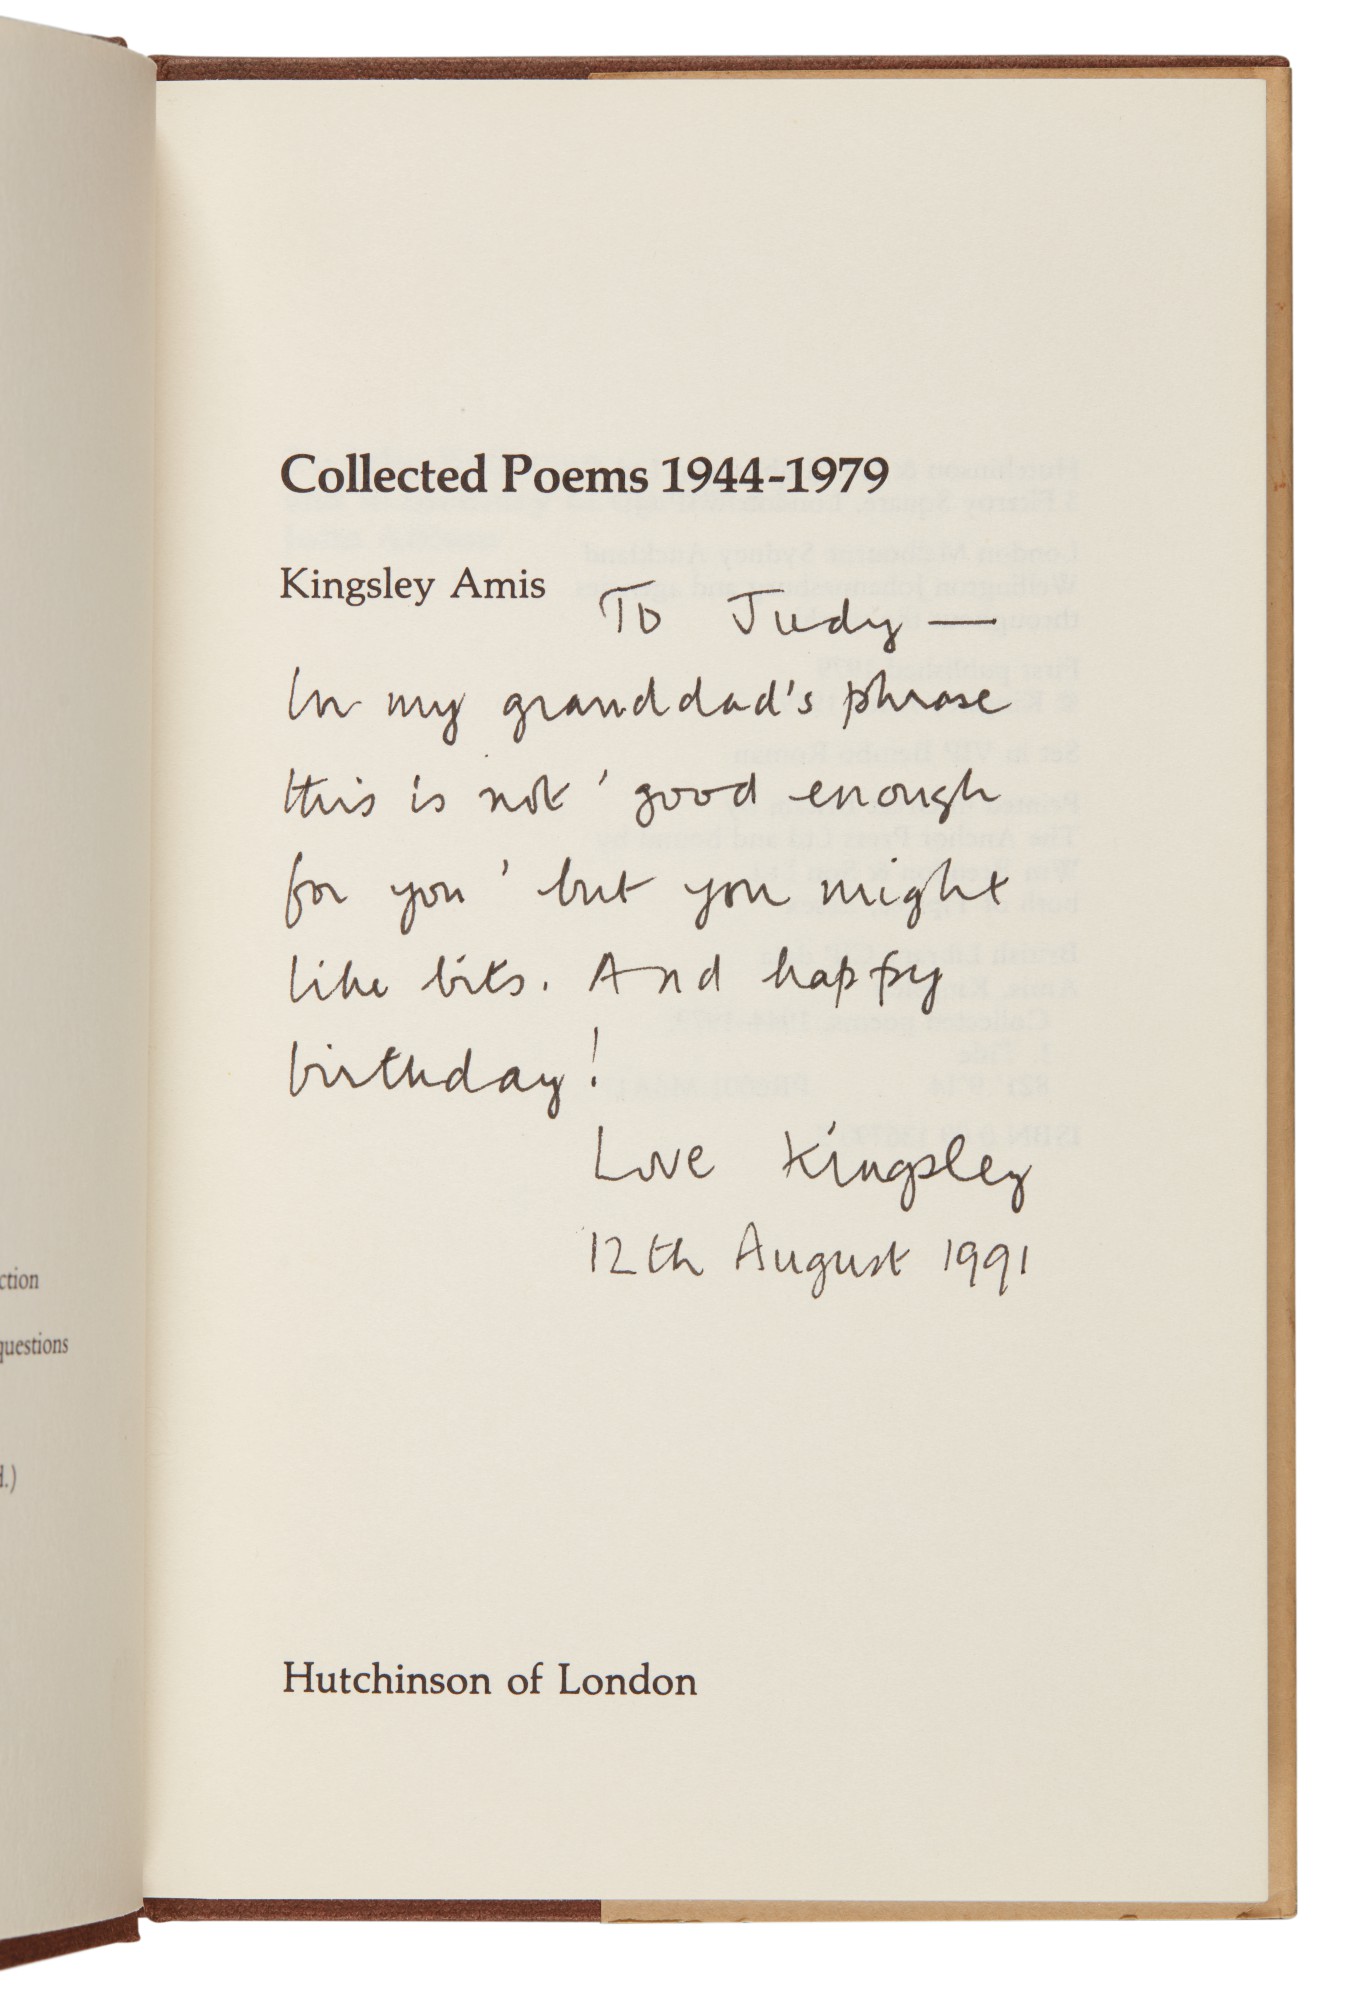 Collected Poems 1944-1979
Kingsley Amis
To Judy —
In my granddad's phrase
this is not 'good enough
for you' but you might
like bits. And happy
birthday!
Love Kingsley
12th August 1991
ction
questions
d.)
Hutchinson of London